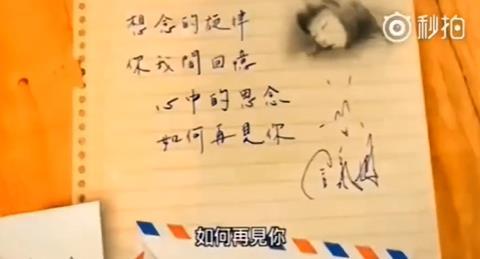 秒拍
想念的旋律
你我間回憶
心中的思念
如何再見你
如何再見你